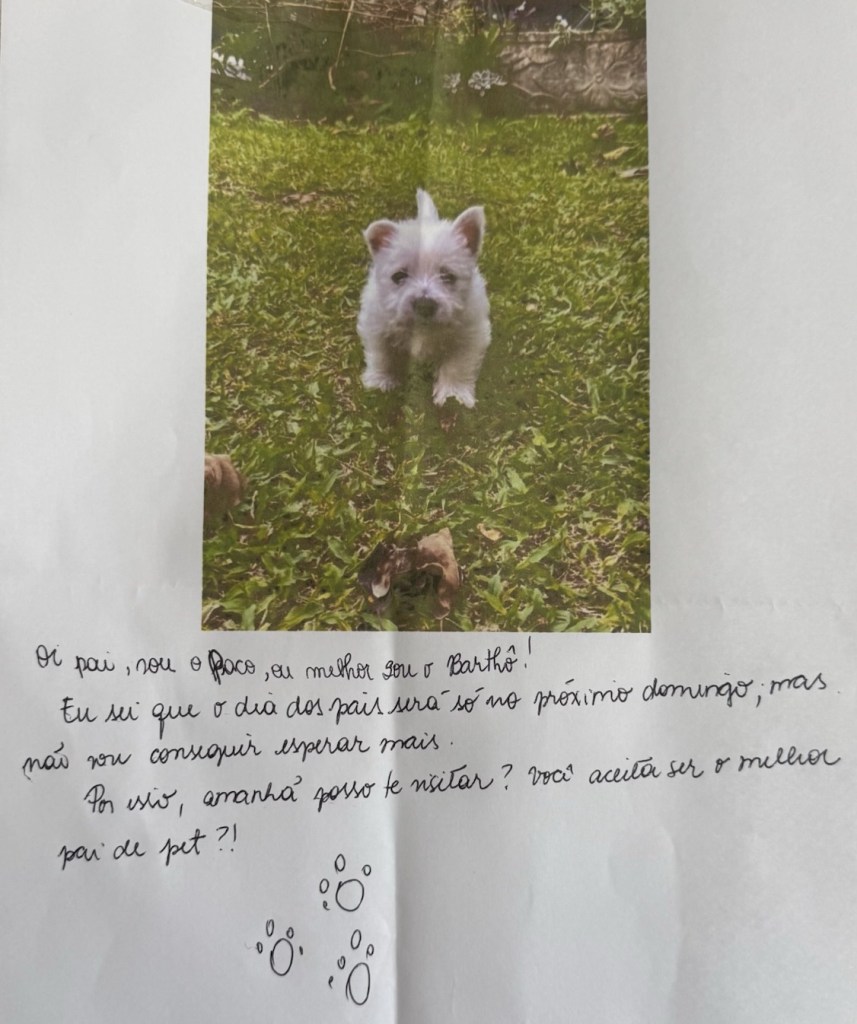 Oi pai, sou o Paco, ou melhor sou o Barthô!
Eu sei que o dia dos pais será só no próximo domingo, mas
não vou conseguir esperar mais.
Por isso, amanhã posso te visitar? Você aceita ser o melhor
pai de pet?!